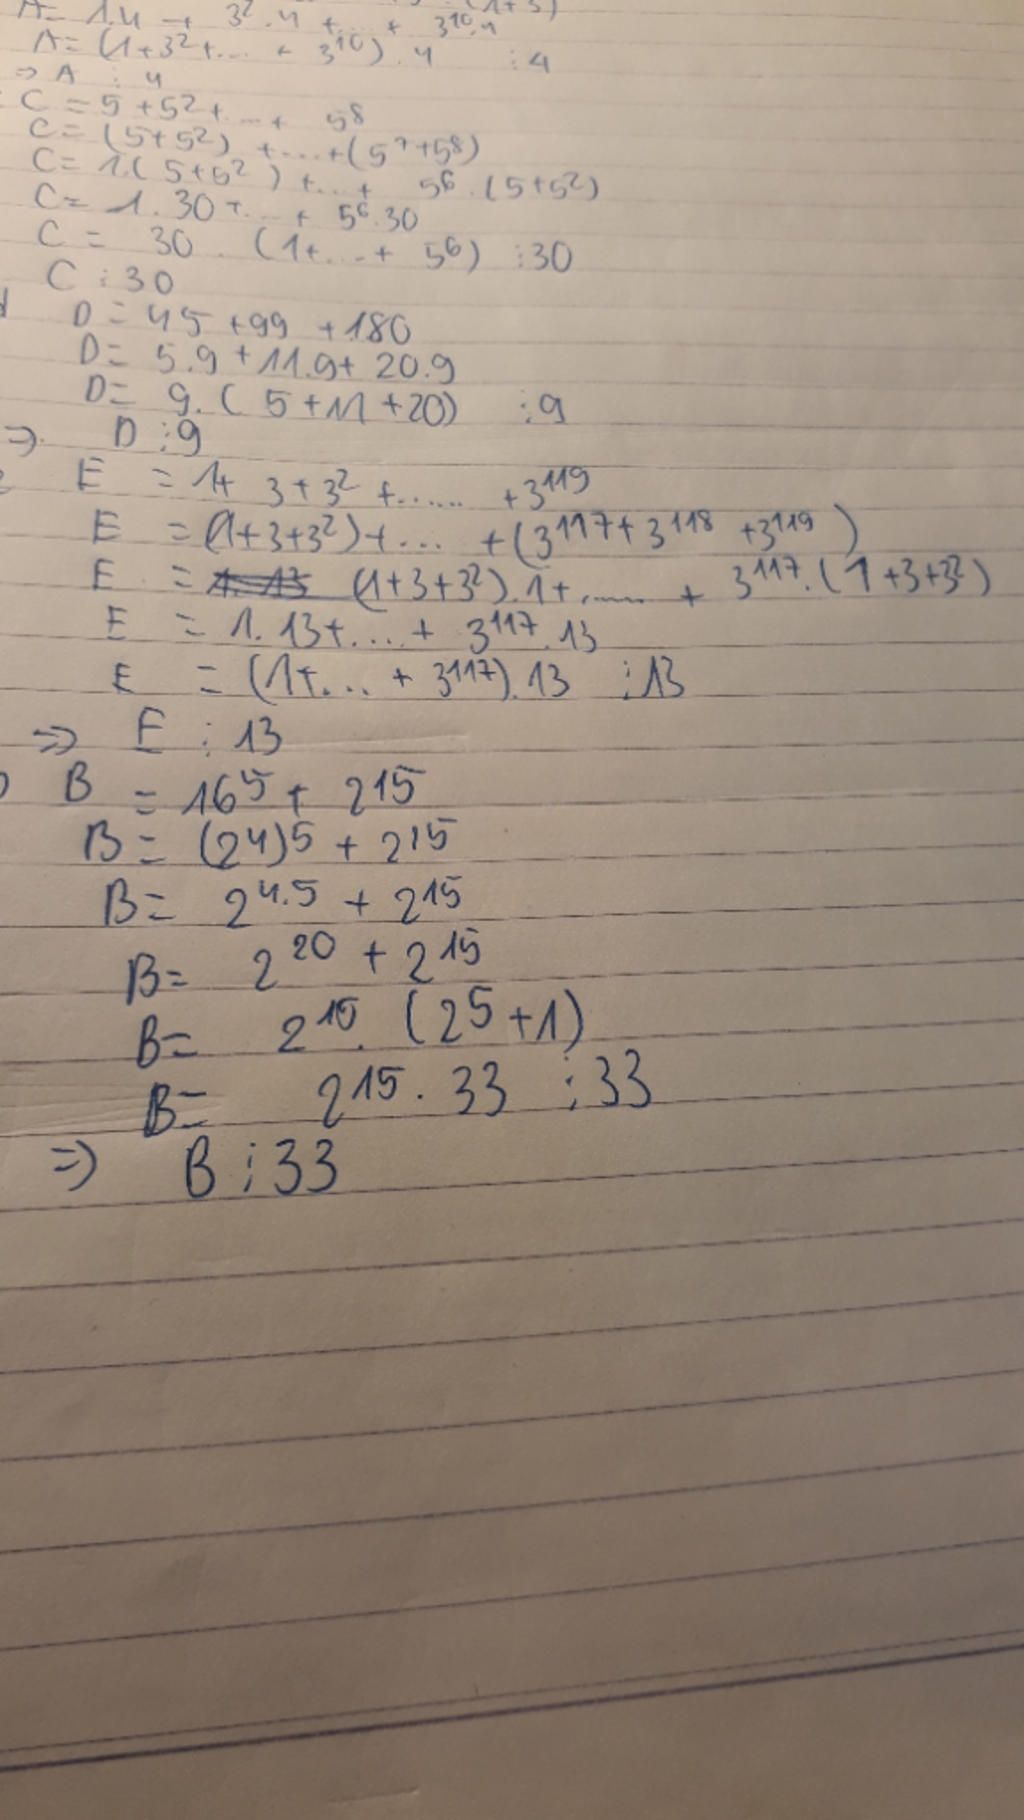 A= 1.4 + 3².4 +...+ 3¹⁰.4
A= (1+3²+... + 3¹⁰).4 ⋮4
=> A ⋮ 4
C = 5 +5²+...+ 5⁸
C= (5+5²) +....+(5⁷+5⁸)
C= 1.(5+5²) +...+ 5⁶.(5+5²)
C= 1.30+... + 5⁶.30
C = 30 . (1+...+ 5⁶) ⋮30
C ⋮30
D = 45 +99 +180
D= 5.9 +11.9+ 20.9
D= 9.( 5 +11 +20) ⋮9
=> D ⋮9
E = 1+ 3+3² +...... +3¹¹⁹
E = (1+3+3²)+... +(3¹¹⁷+3¹¹⁸ +3¹¹⁹)
E = (1+3+3²).1+...... + 3¹¹⁷.(1+3+3²)
E = 1.13+...+ 3¹¹⁷.13
E = (1+... + 3¹¹⁷).13 ⋮13
=> E ⋮ 13
B = 16⁵+ 2¹⁵
B= (2⁴)⁵ + 2¹⁵
B= 2⁴·⁵ + 2¹⁵
B= 2²⁰ + 2¹⁵
B= 2¹⁵. (2⁵+1)
B= 2¹⁵. 33 ⋮33
=> B ⋮33